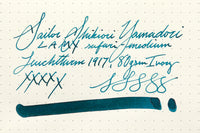 Sailor Shikiori Yamadori
LAMY safari medium
Leuchtturm 1917 80gsm Ivory
XXXX SSSSS